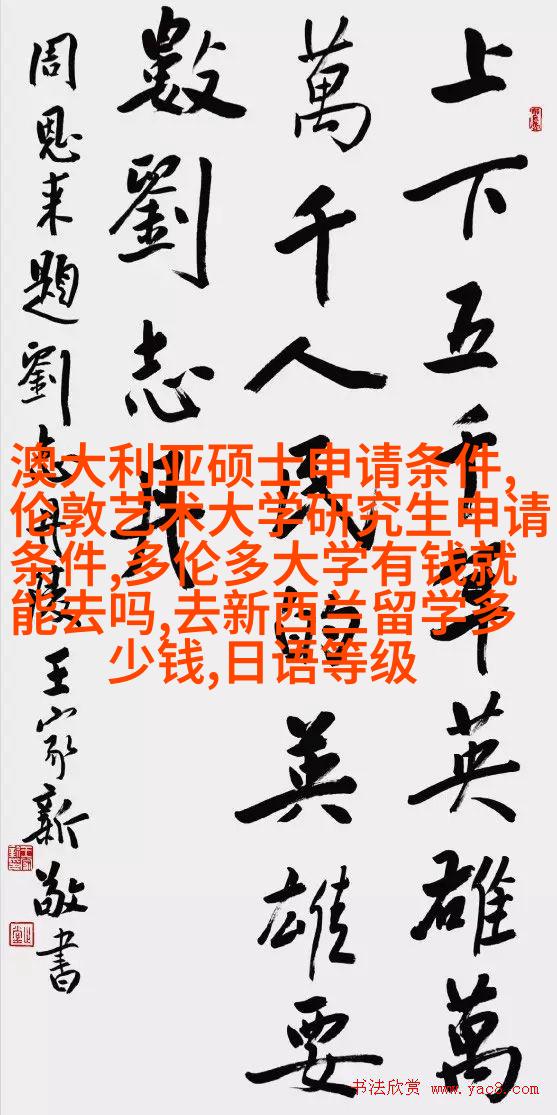 上下五千年英雄萬
萬千人民的英雄要
數劉志丹
周恩来題劉志丹陵王家新敬書
澳大利亚硕士申请条件,
伦敦艺术大学研究生申请
条件,多伦多大学有钱就
能去吗,去新西兰留学多
少钱,日语等级
书法欣赏 www.yac8.com